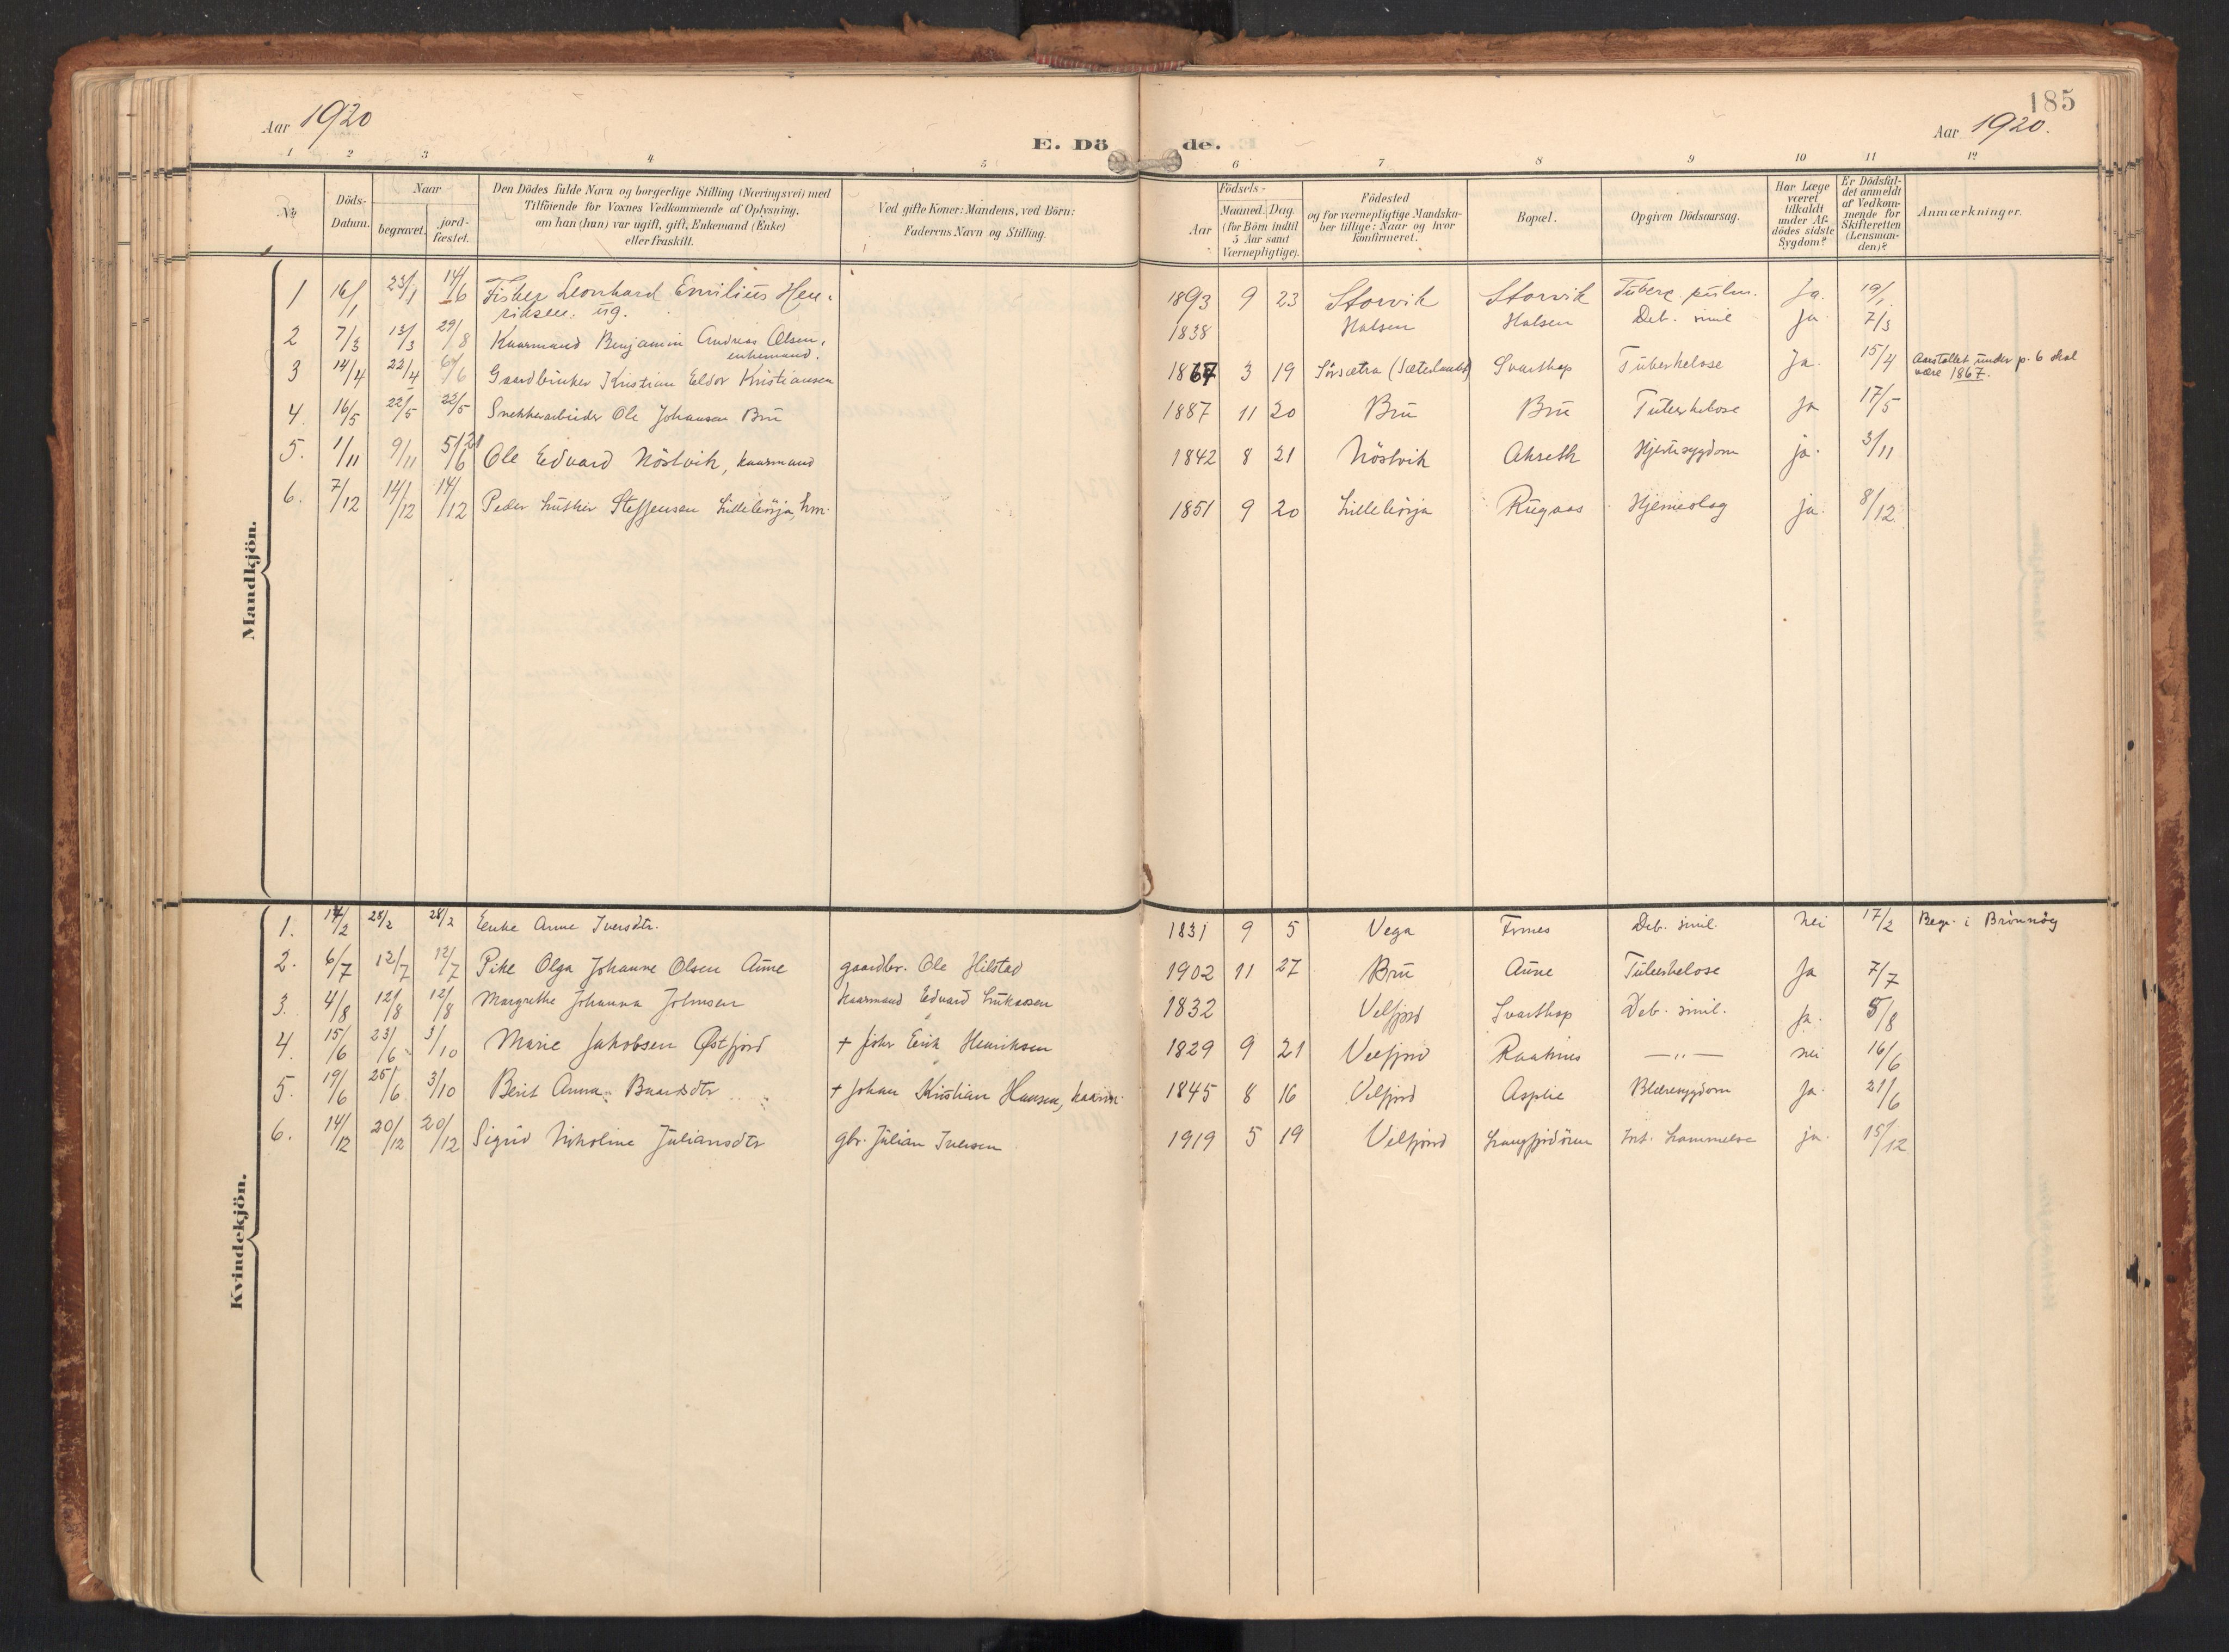 185
Aar 1920
E. Döde.
Aar 1920.
1 2 3 4 5 6 7 8 9 10 11 12
No.
Döds-Datum.
Naar
begravet.
jord-fæstet.
Den Dödes fulde Navn og borgerlige Stilling (Næringsvei) med
Tilföiende for Voxnes Vedkommende af Oplysning,
om han (hun) var ugift, gift, Enkemand (Enke)
eller fraskilt.
Ved gifte Koner: Mandens, ved Börn:
Faderens Navn og Stilling.
Födsels-
Aar
Maaned. Dag.
(for Börn indtil
5 Aar samt
Værnepligtige).
Födested
og for værnepligtige Mandska-
ber tillige: Naar og hvor
konfirmeret.
Bopæl.
Opgiven Dödsaarsag.
Har Læge
været
tilkaldt
under Af-
dödes sidste
Sygdom?
Er Dödsfal-
det anmeldt
af Vedkom-
mende for
Skifteretten
(Lensman-
den)?
Anmærkninger.
Mandkjön.
1 16/1 23/1 14/6 Fisker Leonhard Emilius Hen-
riksen. ug. 1893 9 23 Storvik Storvik Tuberc. pulm. Ja. 19/1
2 7/3 13/3 29/8 Kaarmand Benjamin Andreas Olsen,
enkemand. 1838 Halsen Halsen Deb. senil ja. 7/3
3 14/4 22/4 6/6 Gaardbruker Kristian Eldor Kristiansen 1867 3 19 Sörsætra (Sæterlandet) Svarthop Tuberkelose Ja. 15/4 Aarstallet under p. 6 skal
være 1867.
4. 16/5 22/5 22/5 Snekkerarbeider Ole Johansen Bru 1887 11 20 Bru Bru Tuberkelose ja 17/5
5. 1/11 9/11 5/6 21 Ole Edvard Nöstvik, kaarmand 1842 8 21 Nöstvik Akseth Hjertesygdom ja. 3/11
6. 7/12 14/12 14/12 Peder Luther Steffensen Lillebörja, km. 1851 9 20 Lillebörja Rugaas Hjerneslag ja. 8/12
Kvindekjön.
1. 14/2 28/2 28/2 Enke Anne Iversdtr. 1831 9 5 Vega Formes Deb. senil. nei 17/2 Begr. i Brönnöy
2. 6/7 12/7 12/7 Pike Olga Johanne Olsen Aune gaardbr. Ole Hilstad 1902 11 27 Bru Aune Tuberkelose Ja 7/7
3. 4/8 12/8 12/8 Margrethe Johanna Johnsen Kaarmand Edvard Lukassen 1832 Velfjord Svarthop Deb. senil. Ja. 5/8
4. 15/6 23/6 3/10 Marie Jakobsen Østfjord + Johr Erik Henriksen 1829 9 21 Velfjord — " — nei 16/6
5. 19/6 25/6 3/10 Berit Anna Baardsdtr + Johan Kristian Hansen, kaarm. 1845 8 16 Velfjord Asplie Blæresygdom Ja. 21/6
6. 14/12 20/12 20/12 Sigrid Nikoline Juliansdtr gbr. Julian Iversen 1919 5 19 Velfjord Langfjordören Lammelse ja. 15/12